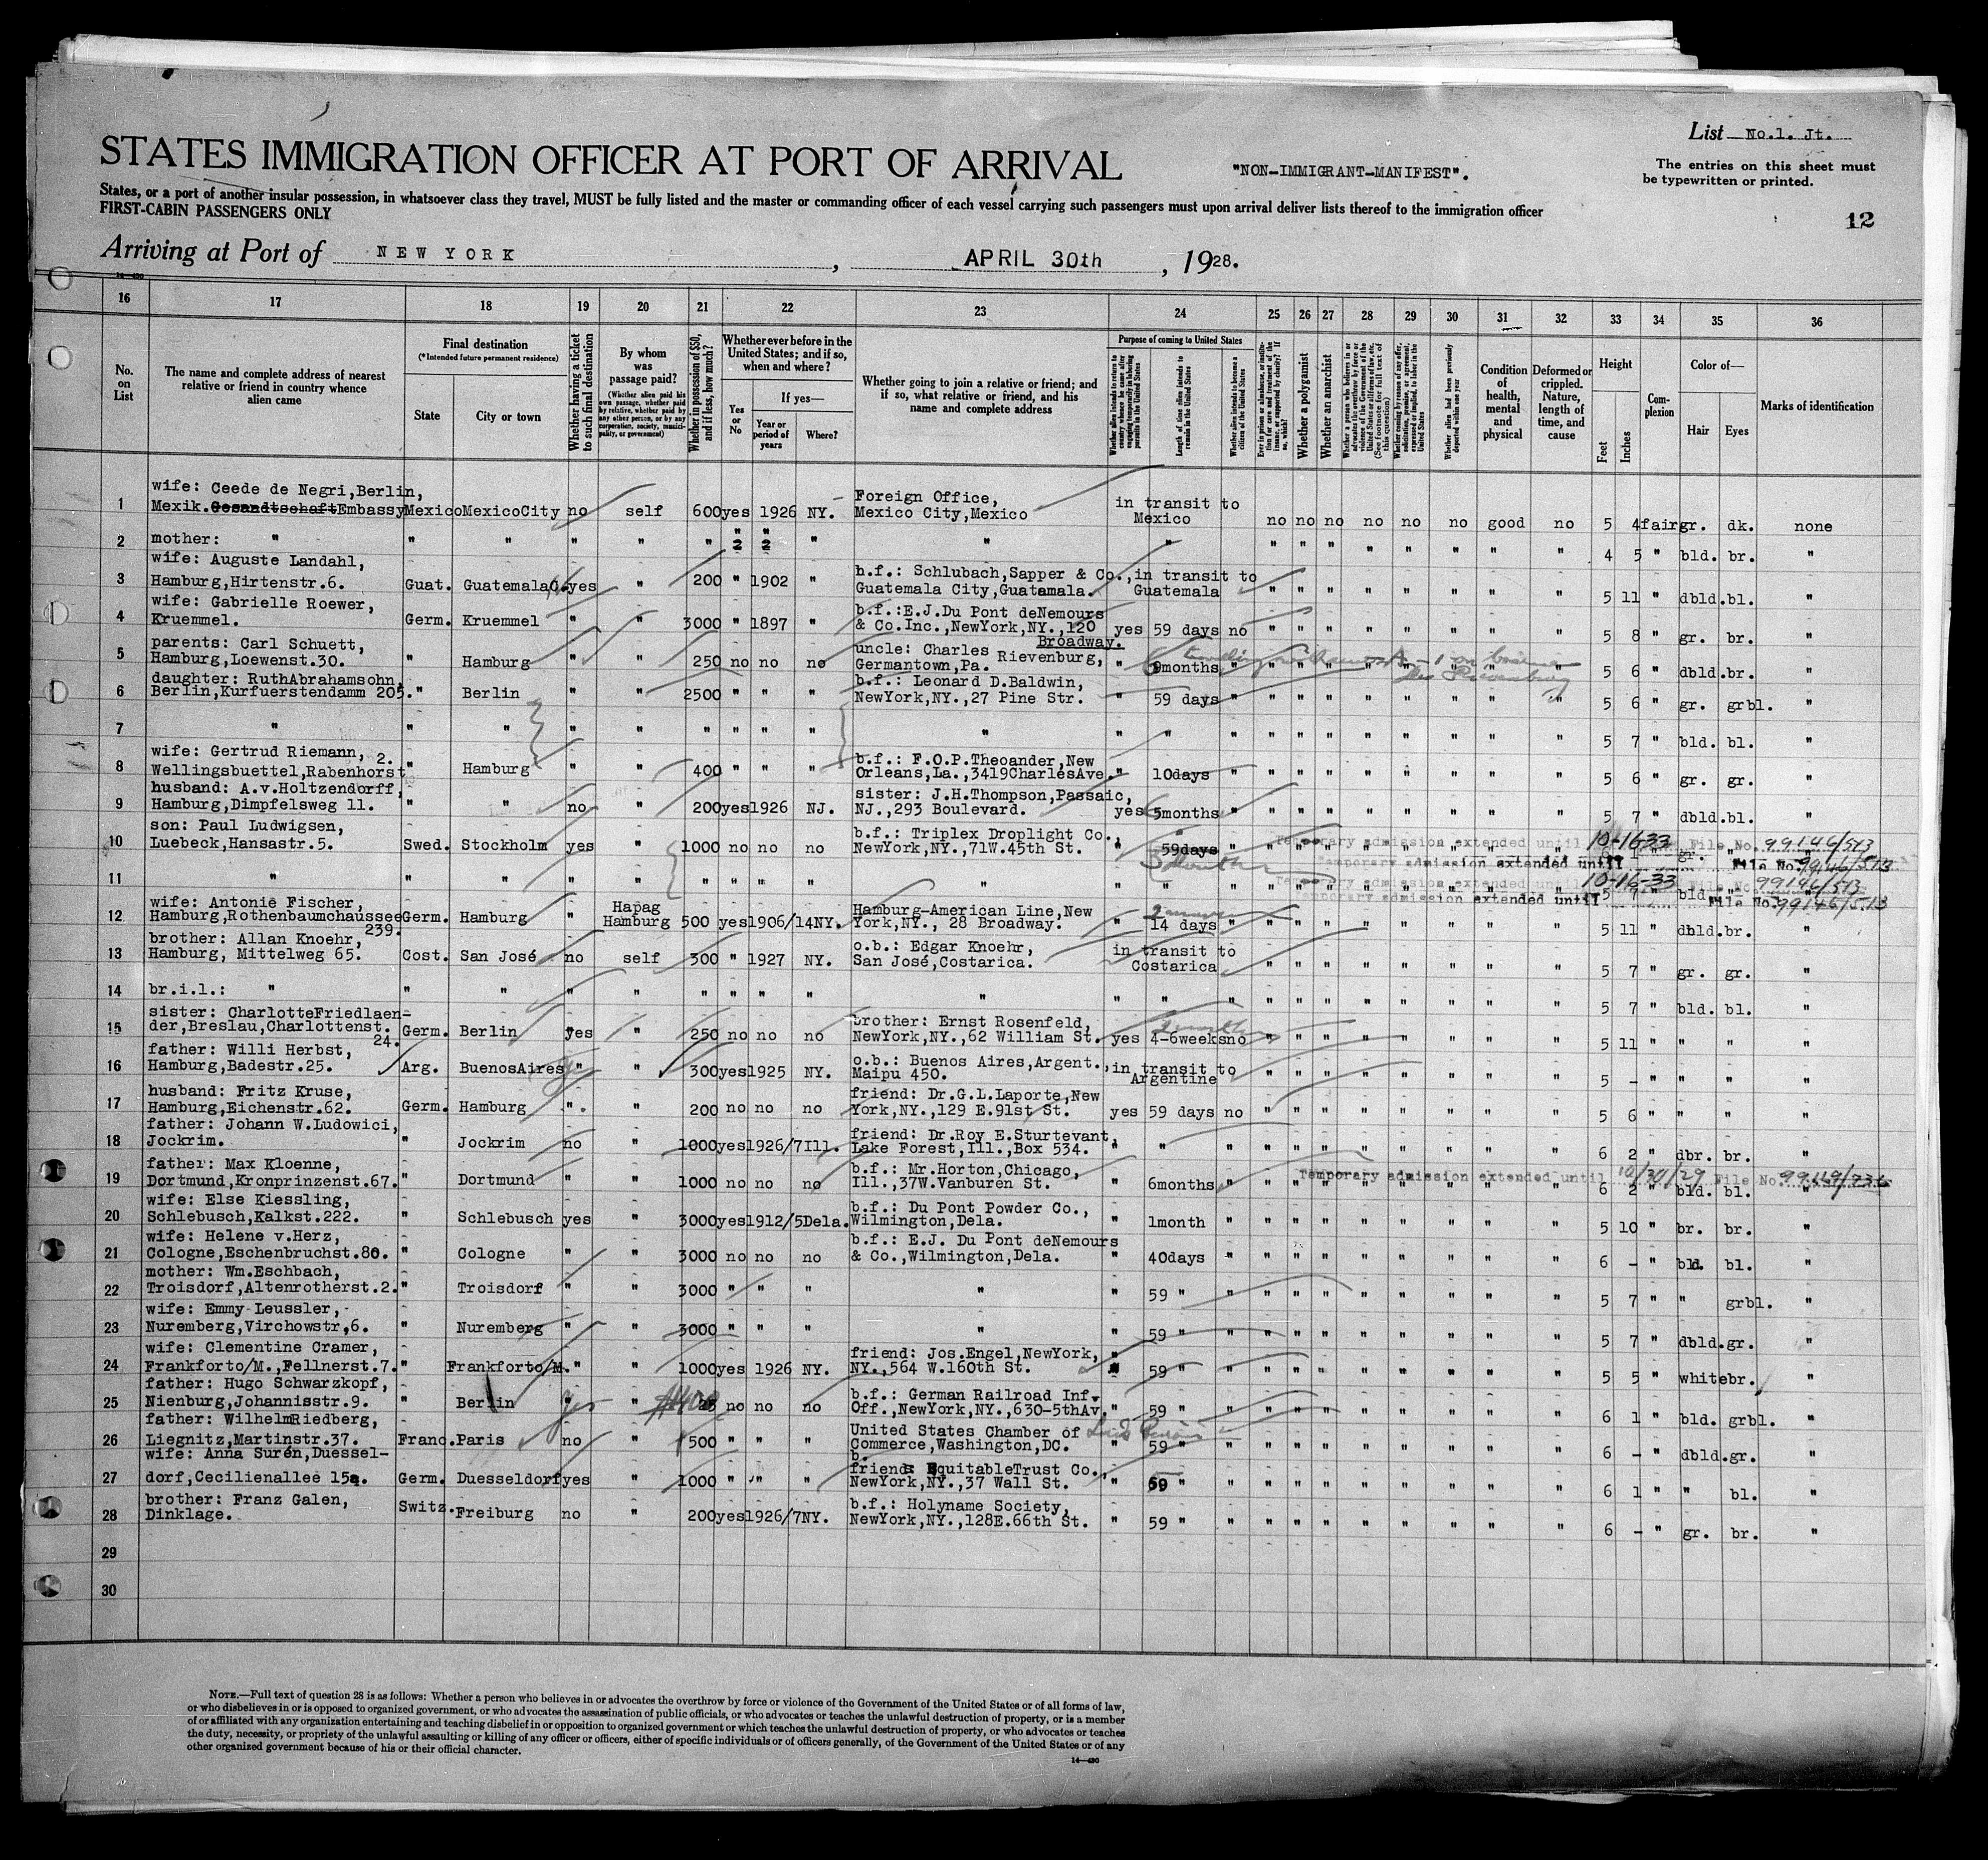 List No.1. Jt.
STATES IMMIGRATION OFFICER AT PORT OF ARRIVAL
"NON-IMMIGRANT-MANIFEST".
The entries on this sheet must
be typewritten or printed.
States, or a port of another insular possession, in whatsoever class they travel, MUST be fully listed and the master or commanding officer of each vessel carrying such passengers must upon arrival deliver lists thereof to the immigration officer
FIRST-CABIN PASSENGERS ONLY
12
Arriving at Port of NEW YORK, APRIL 30th, 1928.
14—430
16 17 18 19 20 21 22 23 24 25 26 27 28 29 30 31 32 33 34 35 36
No. on List
The name and complete address of nearest relative or friend in country whence alien came
Final destination
(*Intended future permanent residence)
State
City or town
Whether having a ticket to such final destination
By whom was passage paid?
(Whether alien paid his own passage, whether paid by relative, whether paid by any other person, or by any corporation, society, municipality, or government)
Whether in possession of $50, and if less, how much?
Whether ever before in the United States; and if so, when and where?
Yes or No
If yes—
Year or period of years
Where?
Whether going to join a relative or friend; and if so, what relative or friend, and his name and complete address
Purpose of coming to United States
Length of time alien intends to remain in the United States
Whether alien intends to become a citizen of the United States
Whether a polygamist
Whether an anarchist
(See footnote for full text of this question)
Whether alien had been previously deported within one year
Condition of health, mental and physical
Deformed or crippled. Nature, length of time, and cause
Height
Feet
Inches
Complexion
Color of—
Hair
Eyes
Marks of identification
1 wife: Ceede de Negri,Berlin,
Mexik.GesandtschaftEmbassy Mexico MexicoCity no self 600 yes 1926 NY. Foreign Office,
Mexico City,Mexico in transit to
Mexico no no no no no no good no 5 4 fair gr. dk. none
2 mother: " " " " " " " " " " " " " " " " " " " 4 5 " bld. br. "
3 wife: Auguste Landahl,
Hamburg,Hirtenstr.6. Guat. Guatemala yes " 200 " 1902 " b.f.: Schlubach,Sapper & Co.,
Guatemala City,Guatamala. in transit to
Guatemala " " " " " " " " 5 11 " dbld. bl. "
4 wife: Gabrielle Roewer,
Kruemmel. Germ. Kruemmel " " 3000 " 1897 " b.f.:E.J.Du Pont deNemours
& Co.Inc.,NewYork,NY.,120
Broadway. yes 59 days no " " " " " " " " 5 8 " gr. br. "
5 parents: Carl Schuett,
Hamburg,Loewenst.30. " Hamburg " " 250 no no no uncle: Charles Rievenburg,
Germantown,Pa. " months " " " " " " " " 5 6 " dbld. br. "
6 daughter: RuthAbrahamsohn,
Berlin,Kurfuerstendamm 205. " Berlin " " 2500 " " " b.f.: Leonard D.Baldwin,
NewYork,NY.,27 Pine Str. " 59 days " " " " " " " " " 5 6 " gr. grbl. "
7 " " " " " " " " " " " " " " " " " " " " " 5 7 " bld. bl. "
8 wife: Gertrud Riemann,
Wellingsbuettel,Rabenhorst 2. " Hamburg " " 400 " " " b.f.: F.O.P.Theoander,New
Orleans,La.,3419CharlesAve. " 10days " " " " " " " " " 5 6 " gr. gr. "
9 husband: A.v.Holtzendorff,
Hamburg,Dimpfelsweg 11. " " no " 200 yes 1926 NJ. sister: J.H.Thompson,Passaic,
NJ.,293 Boulevard. yes 5months " " " " " " " " " 5 7 " dbld. bl. "
10 son: Paul Ludwigsen,
Luebeck,Hansastr.5. Swed. Stockholm yes " 1000 no no no b.f.: Triplex Droplight Co.,
NewYork,NY.,71W.45th St. " 59days " gr. "
Temporary admission extended until 10-16-33 File No. 99146/513
Temporary admission extended until File No. 99146/513
11 " " " " " " " " " " " " 5 7 " bld.
Temporary admission extended until 10-16-33 File No. 99146/513
Temporary admission extended until File No. 99146/513
12 wife: Antonie Fischer,
Hamburg,Rothenbaumchaussee
239. Germ. Hamburg " Hapag
Hamburg 500 yes 1906/14 NY. Hamburg-American Line,New
York,NY., 28 Broadway. " 14 days " " " " " " " " " 5 11 " dbld. br. "
13 brother: Allan Knoehr,
Hamburg, Mittelweg 65. Cost. San José no self 300 " 1927 NY. o.b.: Edgar Knoehr,
San José,Costarica. in transit to
Costarica " " " " " " " " 5 7 " gr. gr. "
14 br.i.l.: " " " " " " " " " " " " " " " " " " " " " 5 7 " bld. bl. "
15 sister: CharlotteFriedlaen-
der,Breslau,Charlottenst.
24. Germ. Berlin yes " 250 no no no brother: Ernst Rosenfeld,
NewYork,NY.,62 William St. yes 4-6weeks no " " " " " " " " 5 11 " " " "
16 father: Willi Herbst,
Hamburg,Badestr.25. Arg. BuenosAires " " 300 yes 1925 NY. o.b.: Buenos Aires,Argent.,
Maipu 450. in transit to
Argentine " " " " " " " " 5 - " " " "
17 husband: Fritz Kruse,
Hamburg,Eichenstr.62. Germ. Hamburg " " 200 no no no friend: Dr.G.L.Laporte,New
York,NY.,129 E.91st St. yes 59 days no " " " " " " " " 5 6 " " " "
18 father: Johann W.Ludowici,
Jockrim. " Jockrim no " 1000 yes 1926/7 Ill. friend: Dr.Roy E.Sturtevant,
Lake Forest,Ill.,Box 534. " " " " " " " " " " " 6 2 " dbr. br. "
19 father: Max Kloenne,
Dortmund,Kronprinzenst.67. " Dortmund " " 1000 no no no b.f.: Mr.Horton,Chicago,
Ill.,37W.Vanburen St. " 6months " " " " " " " " " 6 2 " bld. bl. "
Temporary admission extended until 10/30/29 File No. 99119/736
20 wife: Else Kiessling,
Schlebusch,Kalkst.222. " Schlebusch yes " 3000 yes 1912/5 Dela. b.f.: Du Pont Powder Co.,
Wilmington,Dela. " 1month " " " " " " " " " 5 10 " br. br. "
21 wife: Helene v.Herz,
Cologne,Eschenbruchst.80. " Cologne " " 3000 no no no b.f.: E.J. Du Pont deNemours
& Co.,Wilmington,Dela. " 40days " " " " " " " " " 6 - " bld. bl. "
22 mother: Wm.Eschbach,
Troisdorf,Altenrotherst.2. " Troisdorf " " 3000 " " " " " 59 " " " " " " " " " " 5 7 " " grbl. "
23 wife: Emmy Leussler,
Nuremberg,Virchowstr,6. " Nuremberg " " 3000 " " " " " 59 " " " " " " " " " " 5 7 " dbld. gr. "
24 wife: Clementine Cramer,
Frankforto/M.,Fellnerst.7. " Frankforto/M. " " 1000 yes 1926 NY. friend: Jos.Engel,NewYork,
NY.,564 W.160th St. " 59 " " " " " " " " " " 5 5 " white br. "
25 father: Hugo Schwarzkopf,
Nienburg,Johannisstr.9. " Berlin yes " no no no b.f.: German Railroad Inf.
Off.,NewYork,NY.,630-5thAv. " 59 " " " " " " " " " " 6 1 " bld. grbl. "
26 father: WilhelmRiedberg,
Liegnitz,Martinstr.37. Franc. Paris no " 500 " " " United States Chamber of
Commerce,Washington,DC. " 59 " " " " " " " " " " 6 - " dbld. gr. "
27 wife: Anna Surén,Duessel-
dorf,Cecilienallee 15a. Germ. Duesseldorf yes " 1000 " " " b.
friend: EquitableTrust Co.,
NewYork,NY.,37 Wall St. " 59 " " " " " " " " " " 6 1 " " bl. "
28 brother: Franz Galen,
Dinklage. Switz. Freiburg no " 200 yes 1926/7 NY. b.f.: Holyname Society,
NewYork,NY.,128E.66th St. " 59 " " " " " " " " " " 6 - " gr. br. "
29
30
NOTE.—Full text of question 28 is as follows: Whether a person who believes in or advocates the overthrow by force or violence of the Government of the United States or of all forms of law,
or who disbelieves in or is opposed to organized government, or who advocates the assassination of public officials, or who advocates or teaches the unlawful destruction of property, or is a member
of or affiliated with any organization entertaining and teaching disbelief in or opposition to organized government or which teaches the unlawful destruction of property, or who advocates or teaches
the duty, necessity, or propriety of the unlawful assaulting or killing of any officer or officers, either of specific individuals or of officers generally, of the Government of the United States or of any
other organized government because of his or their official character.
14—430